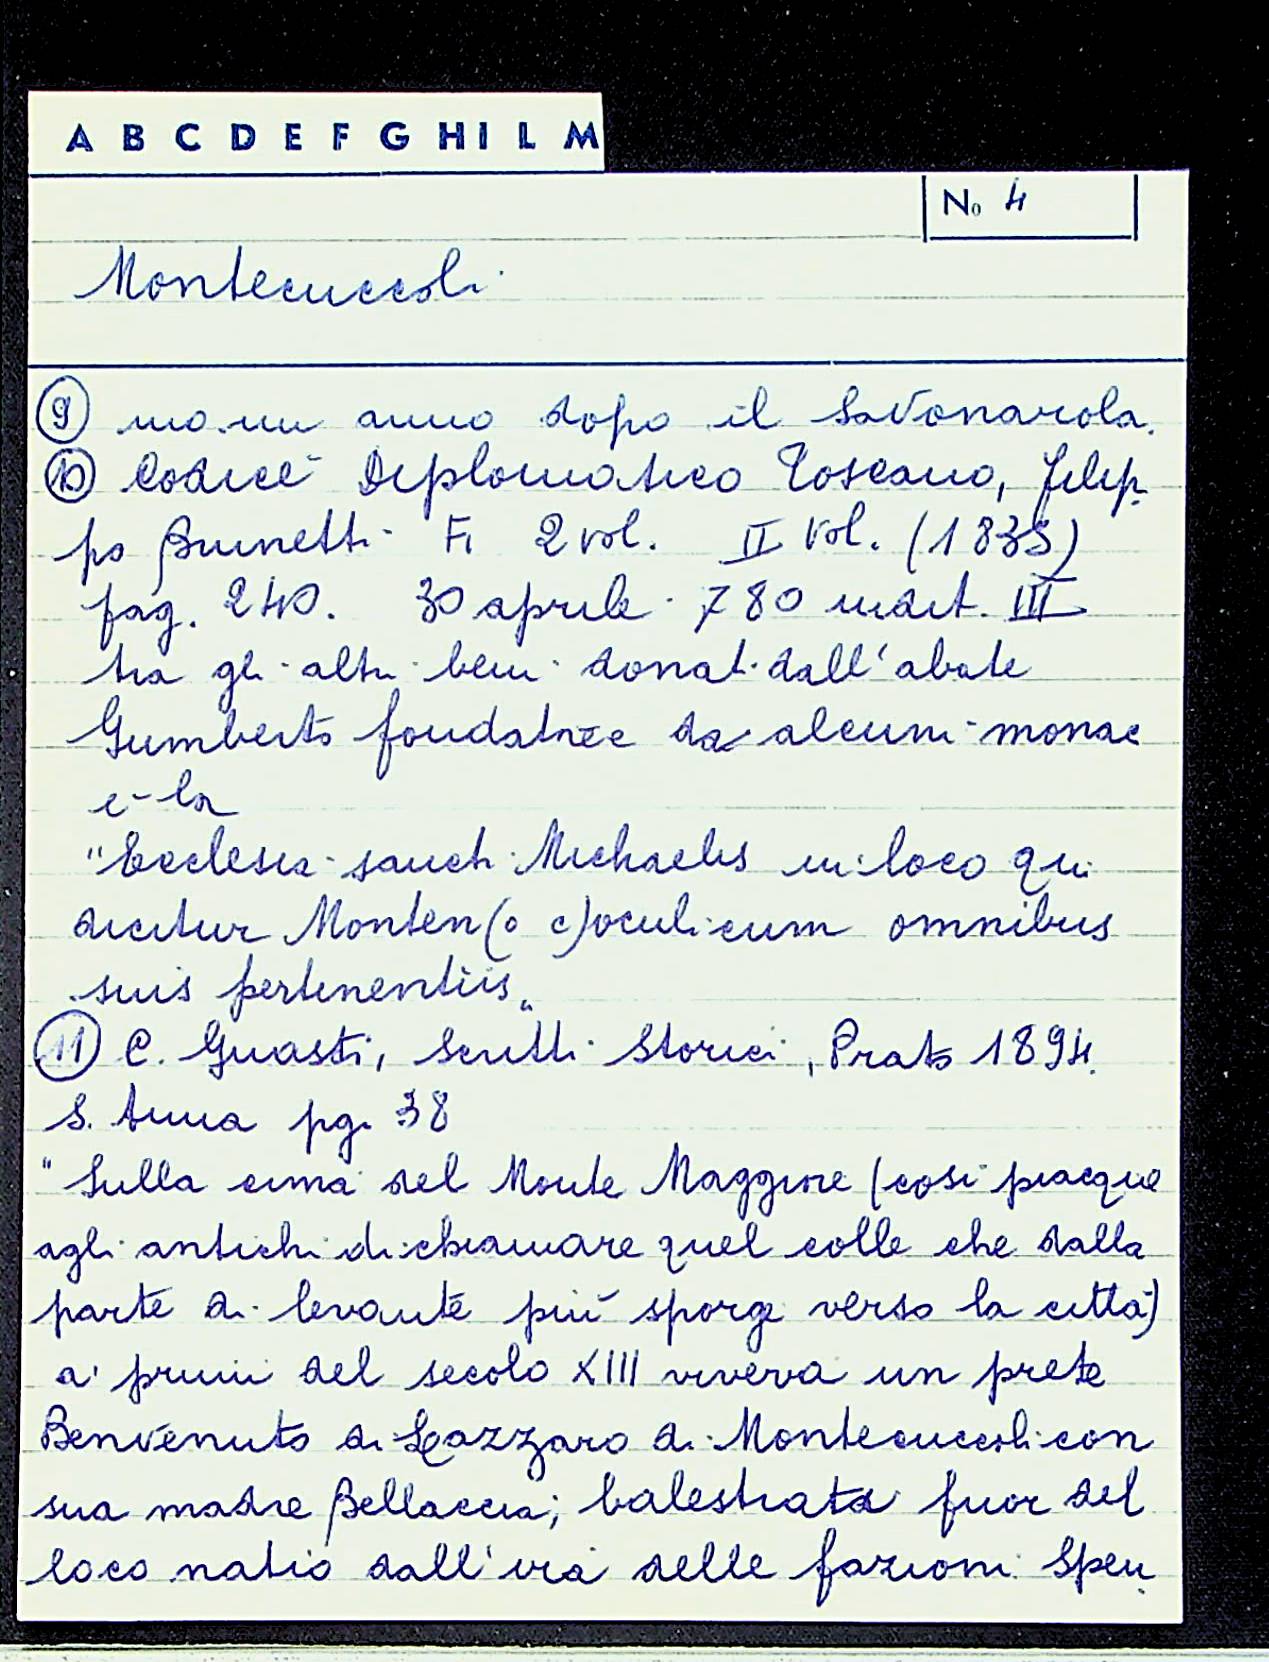 A B C D E F G HI L M
No 4
Montecuccoli
⑨ mo. un anno dopo il Savonarola.
⑩ Codice Diplomatico Toscano, Filip-
po Brunetti Fi 2 vol. II vol. (1833)
pag. 240. 30 aprile 780 indict. III
tra gli altri beni donati dall'abate
Gumberto fondatore da alcuni monac
c'è la
"Ecclesia sancti Michaelis in loco qui
dicitur Monten(o c)oculi cum omnibus
suis pertinentiis"
⑪ C. Guasti, Scritti Storici, Prato 1894.
S. Anna pg. 38
"Sulla cima del Monte Maggiore (così piacque
agli antichi di chiamare quel colle che dalla
parte di levante più sporge verso la città)
a' primi del secolo XIII viveva un prete
Benvenuto di Lazzaro di Montecuccoli con
sua madre Bellaccia; balestrata fuor del
loco natio dall'ira delle fazioni. Spen-